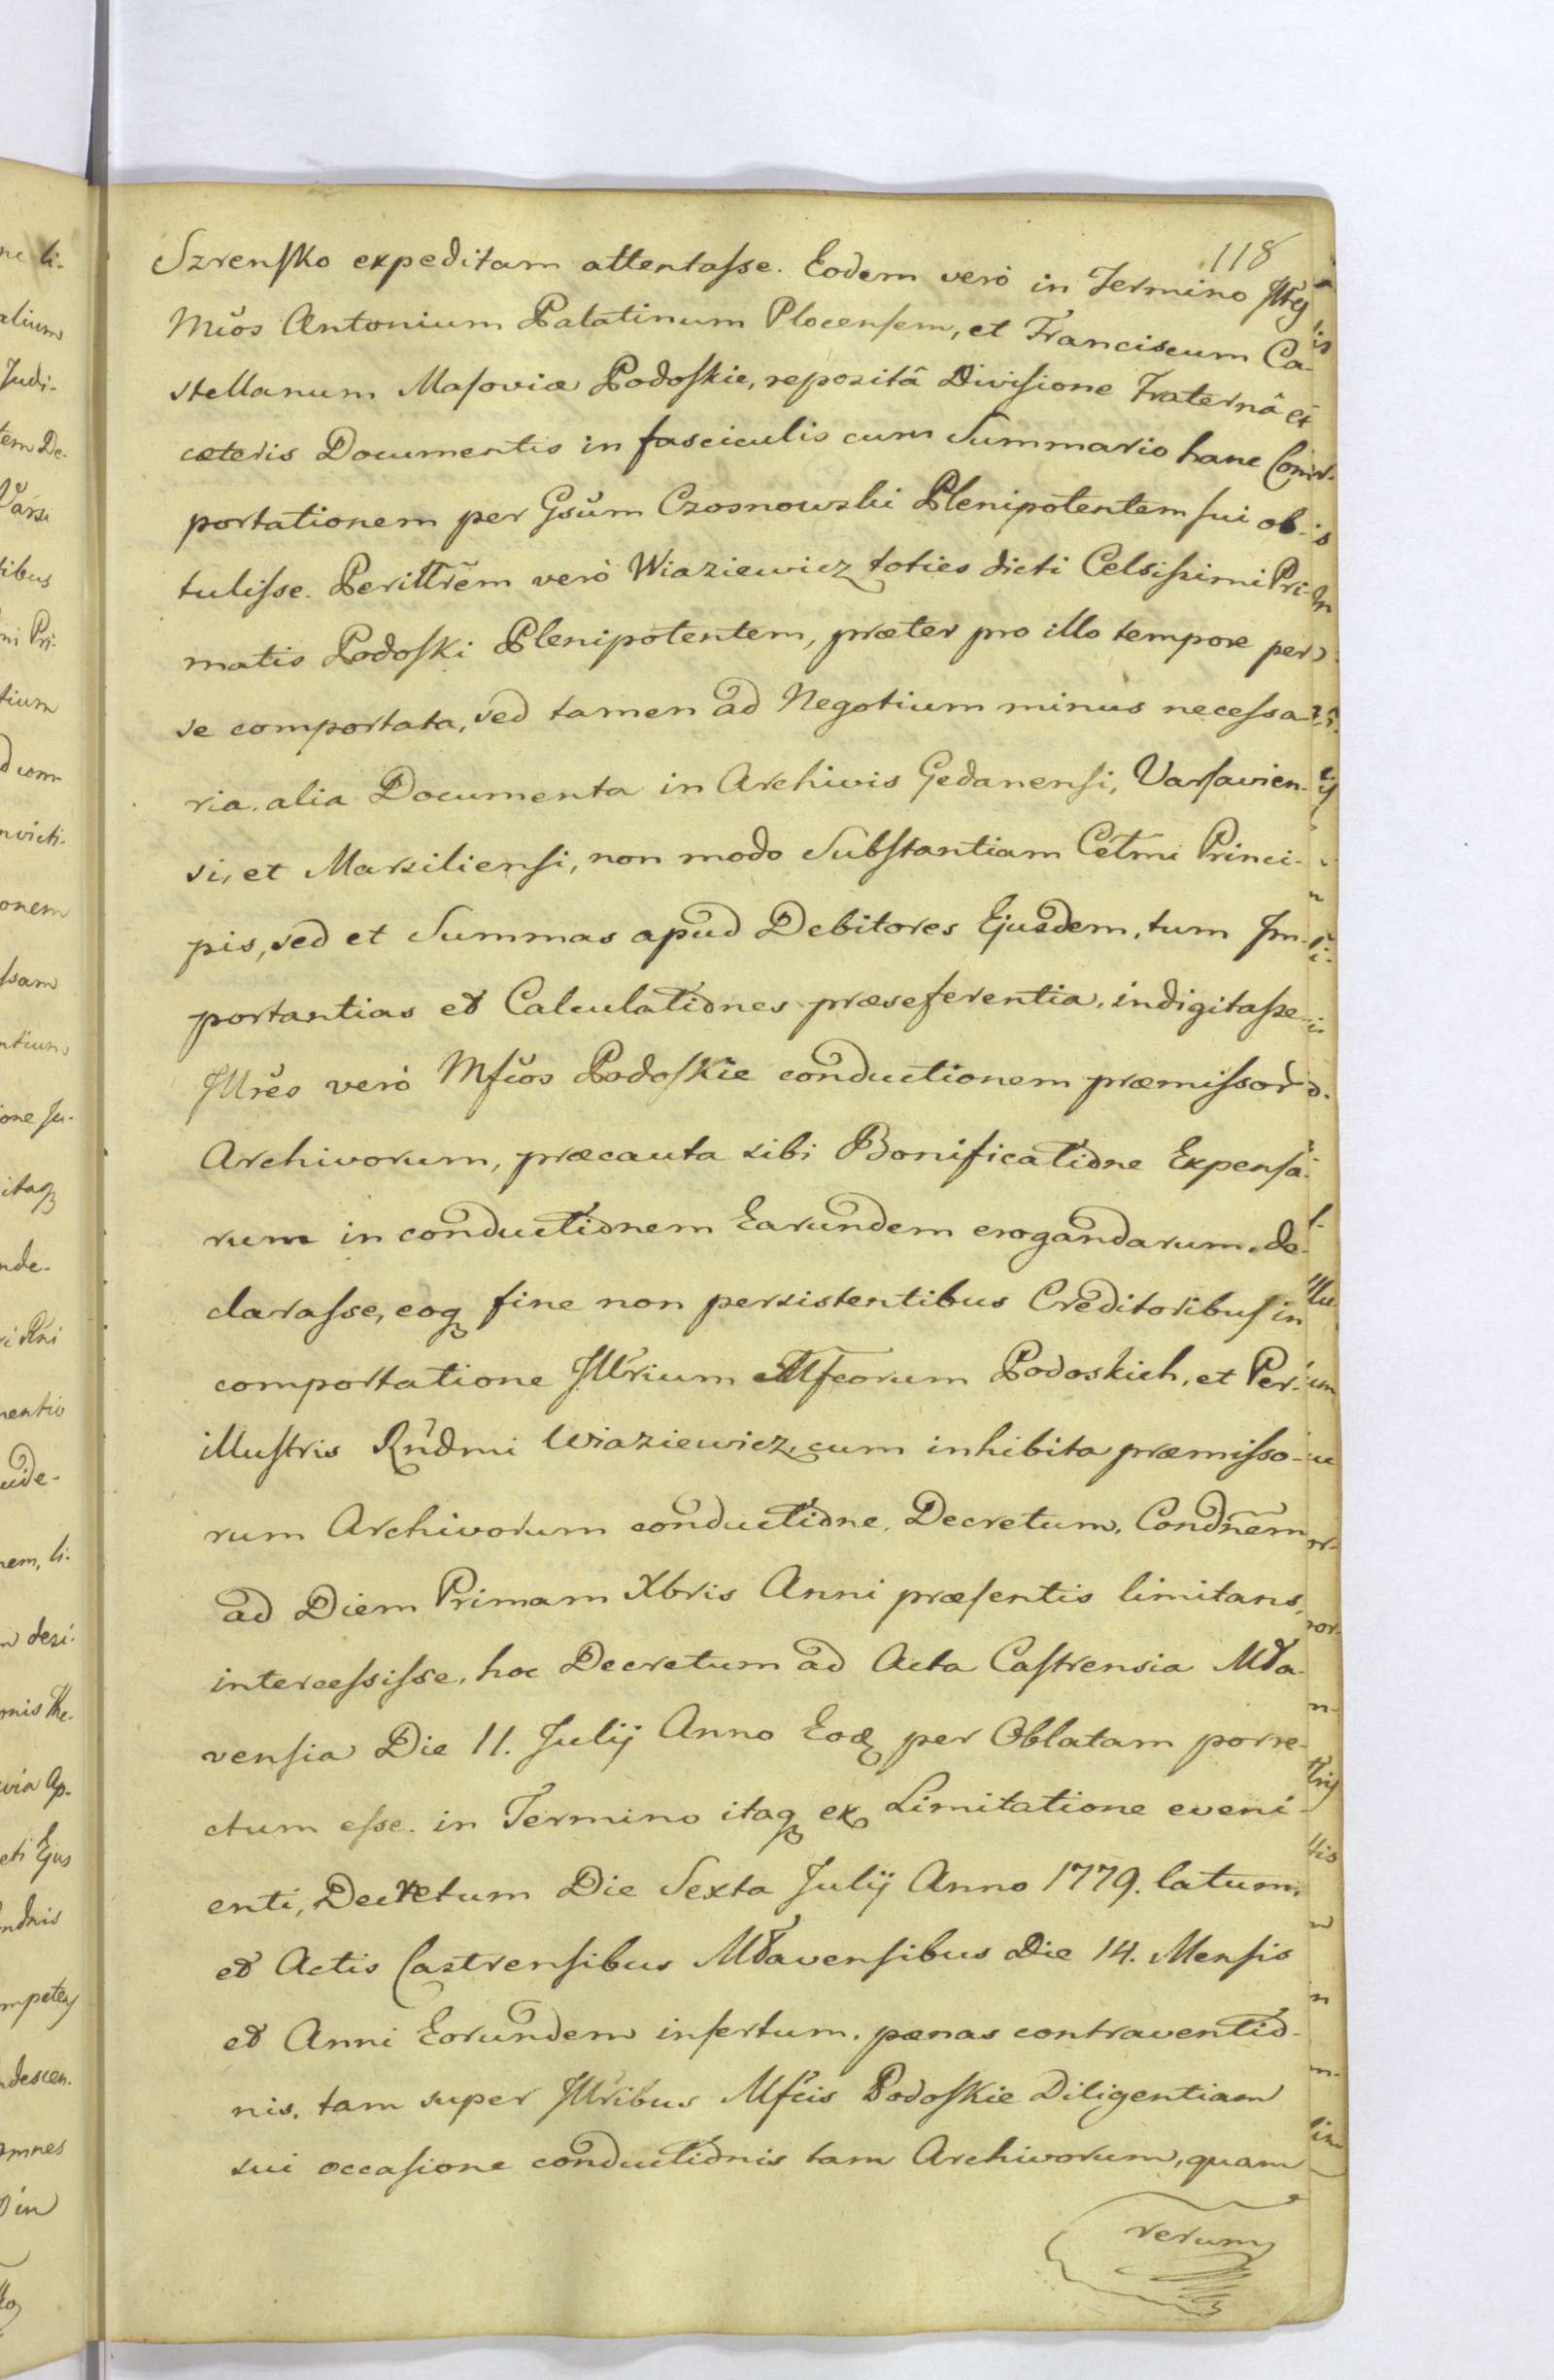 118
Szrensko expeditam attentasse. Eodem verò in Termino Illres
Mcos Antonium Palatinum Plocensem, et Franciscum Ca-
stellanum Masoviæ Podoskie, repositâ Divisione Fraternâ et
cæteris Documentis in fasciculis cum Summario hanc Com-
portationem per Gsum Czosnowski Plenipotentem sui ob-
tulisse. Perillrem verò Wiaziewicz toties dicti Celsissimi Pri-
matis Podoski Plenipotentem, præter pro illo tempore per
se comportata, sed tamen ad Negotium minus necessa-
ria. alia Documenta in Archivis Gedanensi, Varsavien-
si, et Marsiliensi, non modo Substantiam Celmi Princi-
pis, sed et Summas apud Debitores Ejusdem, tum Im-
portantias et Calculationes præseferentia, indigitasse
Illres verò Mfcos Podoskie conductionem præmissor
Archivorum, præcauta sibi Bonificatione Expensa-
rum in conductionem Earundem erogandarum. de-
clarasse, eoq fine non persistentibus Creditoribus in
comportatione Illrium Mfcorum Podoskich, et Per-
illustris Rndmi Wiaziewicz, cum inhibita præmisso-
rum Archivorum conductione, Decretum, Condnem
ad Diem Primam Xbris Anni præsentis limitans,
intercessisse, hoc Decretum ad Acta Castrensia Mła-
vensia Die 11. Julij Anno Eod per Oblatam porre-
ctum esse. in Termino itaq ex Limitatione eveni-
enti, Decretum Die Sexta Julij Anno 1779. latum,
et Actis Castrensibus Młavensibus Die 14. Mensis
et Anni Eorundem insertum. pænas contraventio-
nis, tam super Illribus Mfcis Podoskie Diligentiam
sui occasione conductionis tam Archivorum, quam
rerum